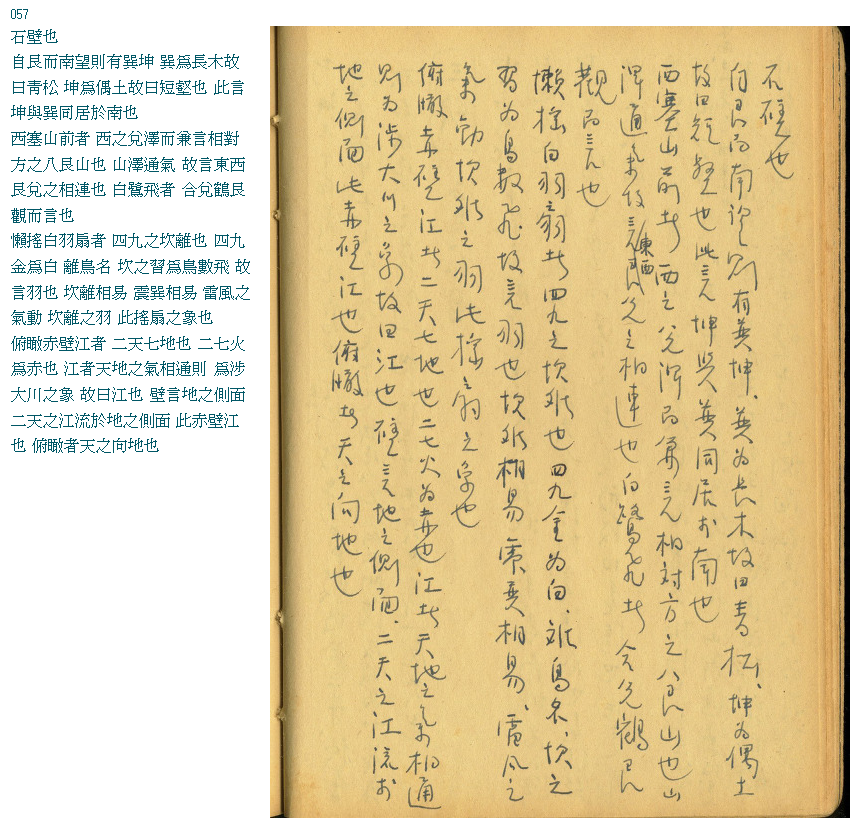 057
石壁也
自艮而南望則有巽坤 巽爲長木故
曰靑松 坤爲偶土故曰短壑也 此言
坤與巽同居於南也
西塞山前者 西之兌澤而兼言相對
方之八艮山也 山澤通氣 故言東西
艮兌之相連也 白鷺飛者 合兌鶴艮
觀而言也
懶搖白羽扇者 四九之坎離也 四九
金爲白 離鳥名 坎之習爲鳥數飛 故
言羽也 坎離相易 震巽相易 雷風之
氣動 坎離之羽 此搖扇之象也
俯瞰赤壁江者 二天七地也 二七火
爲赤也 江者天地之氣相通則 爲涉
大川之象 故曰江也 壁言地之側面
二天之江流於地之側面 此赤壁江
也 俯瞰者天之向地也
石壁也
自艮而南望則有巽坤、巽为長木故曰青松、坤为偶土
故曰短壑也 此言坤與巽同居於南也
西塞山前者 西之兌澤而兼言相対方之八艮山也 山
澤通氣故言東西艮兌之相連也 白鷺飛者 合兌鶴艮
觀而言也
懶搖白羽之扇者 四九之坎離也 四九金为白、離鳥名、坎之
習为鳥數飛故言羽也 坎離相易 震巽相易、雷風之
氣動坎離之羽 此搖之扇之象也
俯瞰赤壁江者 二天七地也 二七火为赤也 江者天地之氣相通
則为涉大川之象 故曰江也 壁言地之側面、二天之江流於
地之側面 此赤壁江也 俯瞰者天之向地也